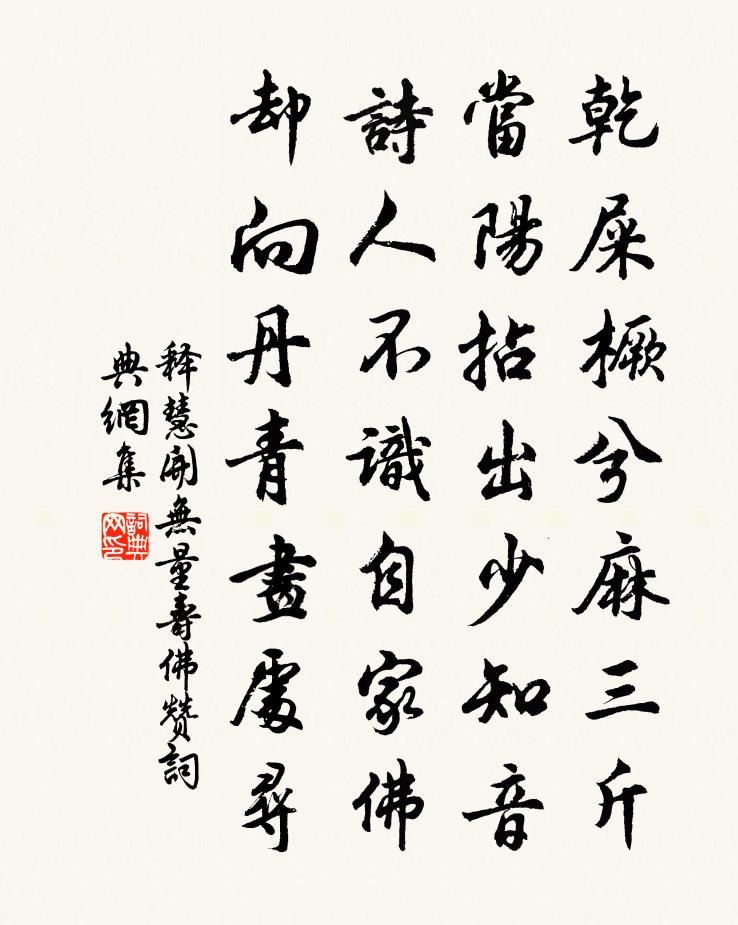 乾屎橛兮麻三斤
當陽拈出少知音
詩人不識自家佛
却向丹青畫處尋
释慧開無量壽佛赞詞
典網集
詞典
网印